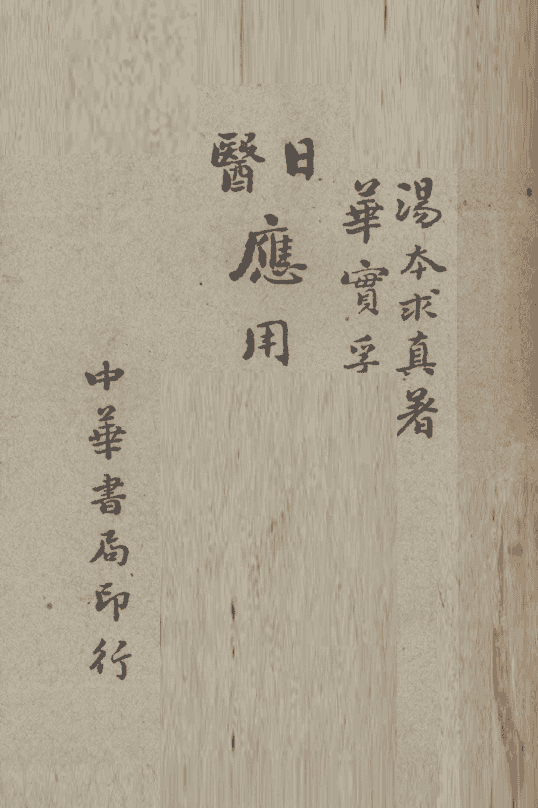 湯本求真著
華實孚
日醫
應用
中華書局印行